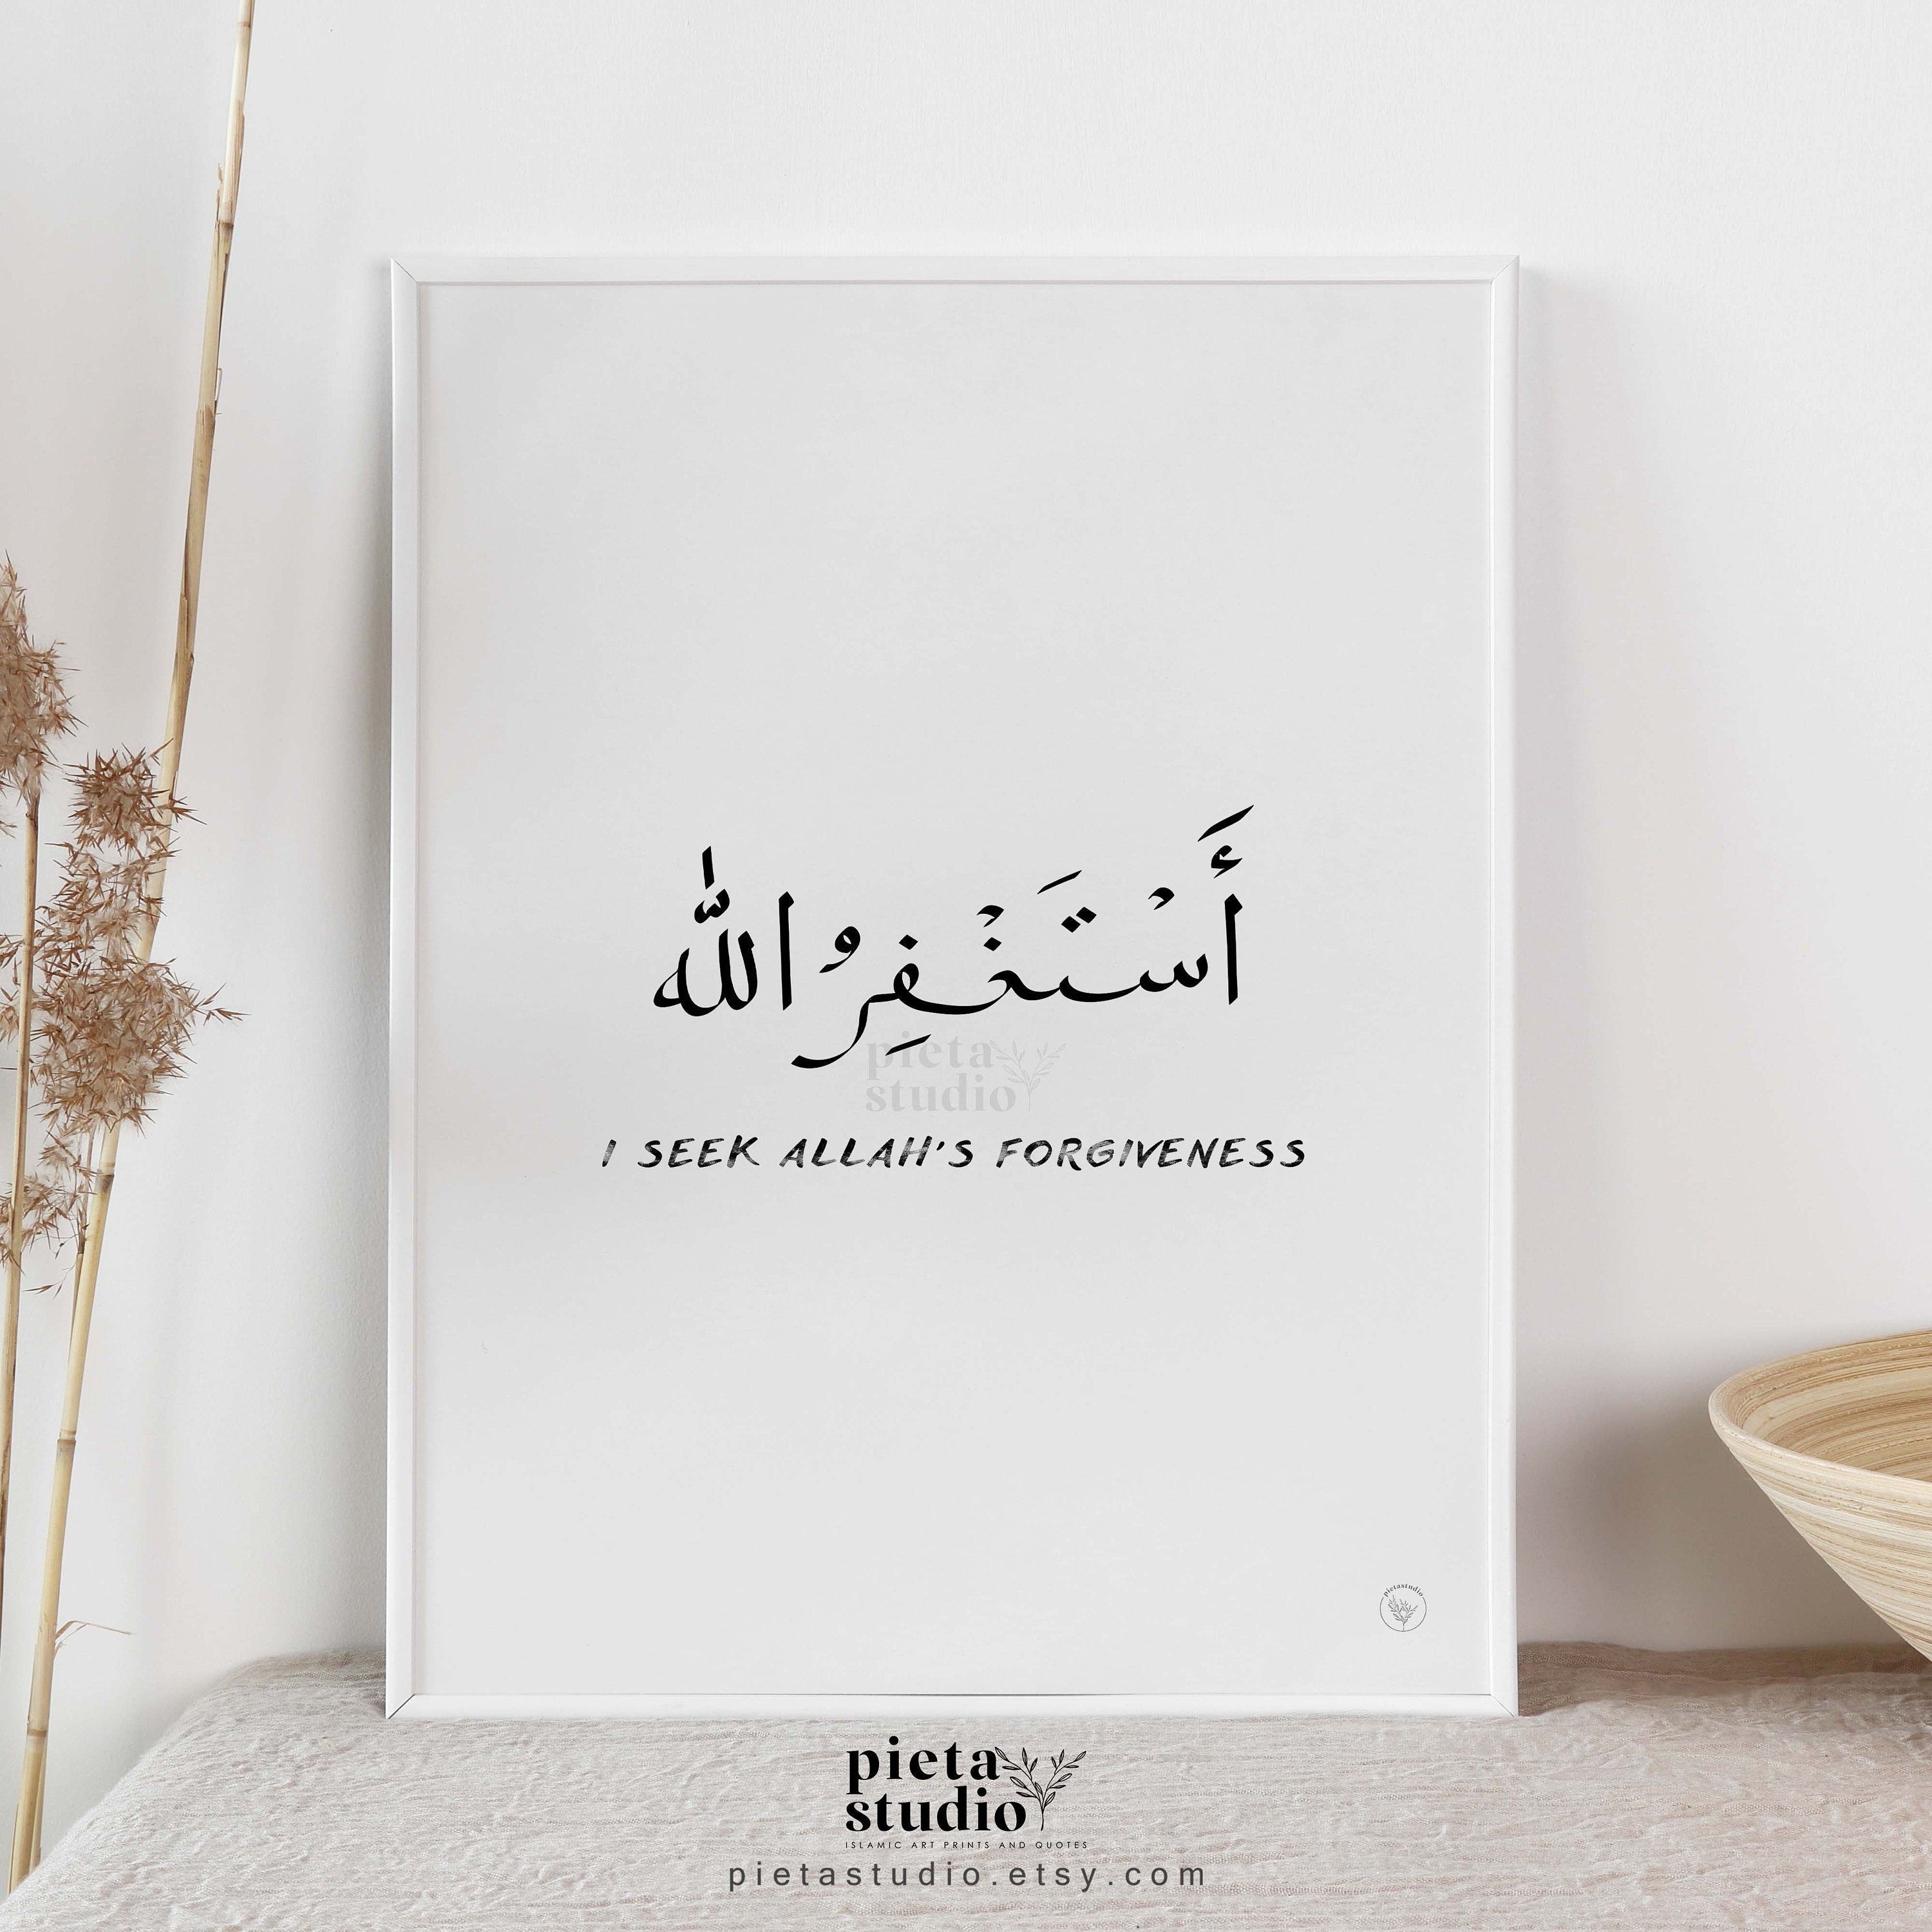 أَسْتَغْفِرُ اللّٰه
pieta
studio
I SEEK ALLAH'S FORGIVENESS
pietastudio
pieta
studio
ISLAMIC ART PRINTS AND QUOTES
pietastudio.etsy.com